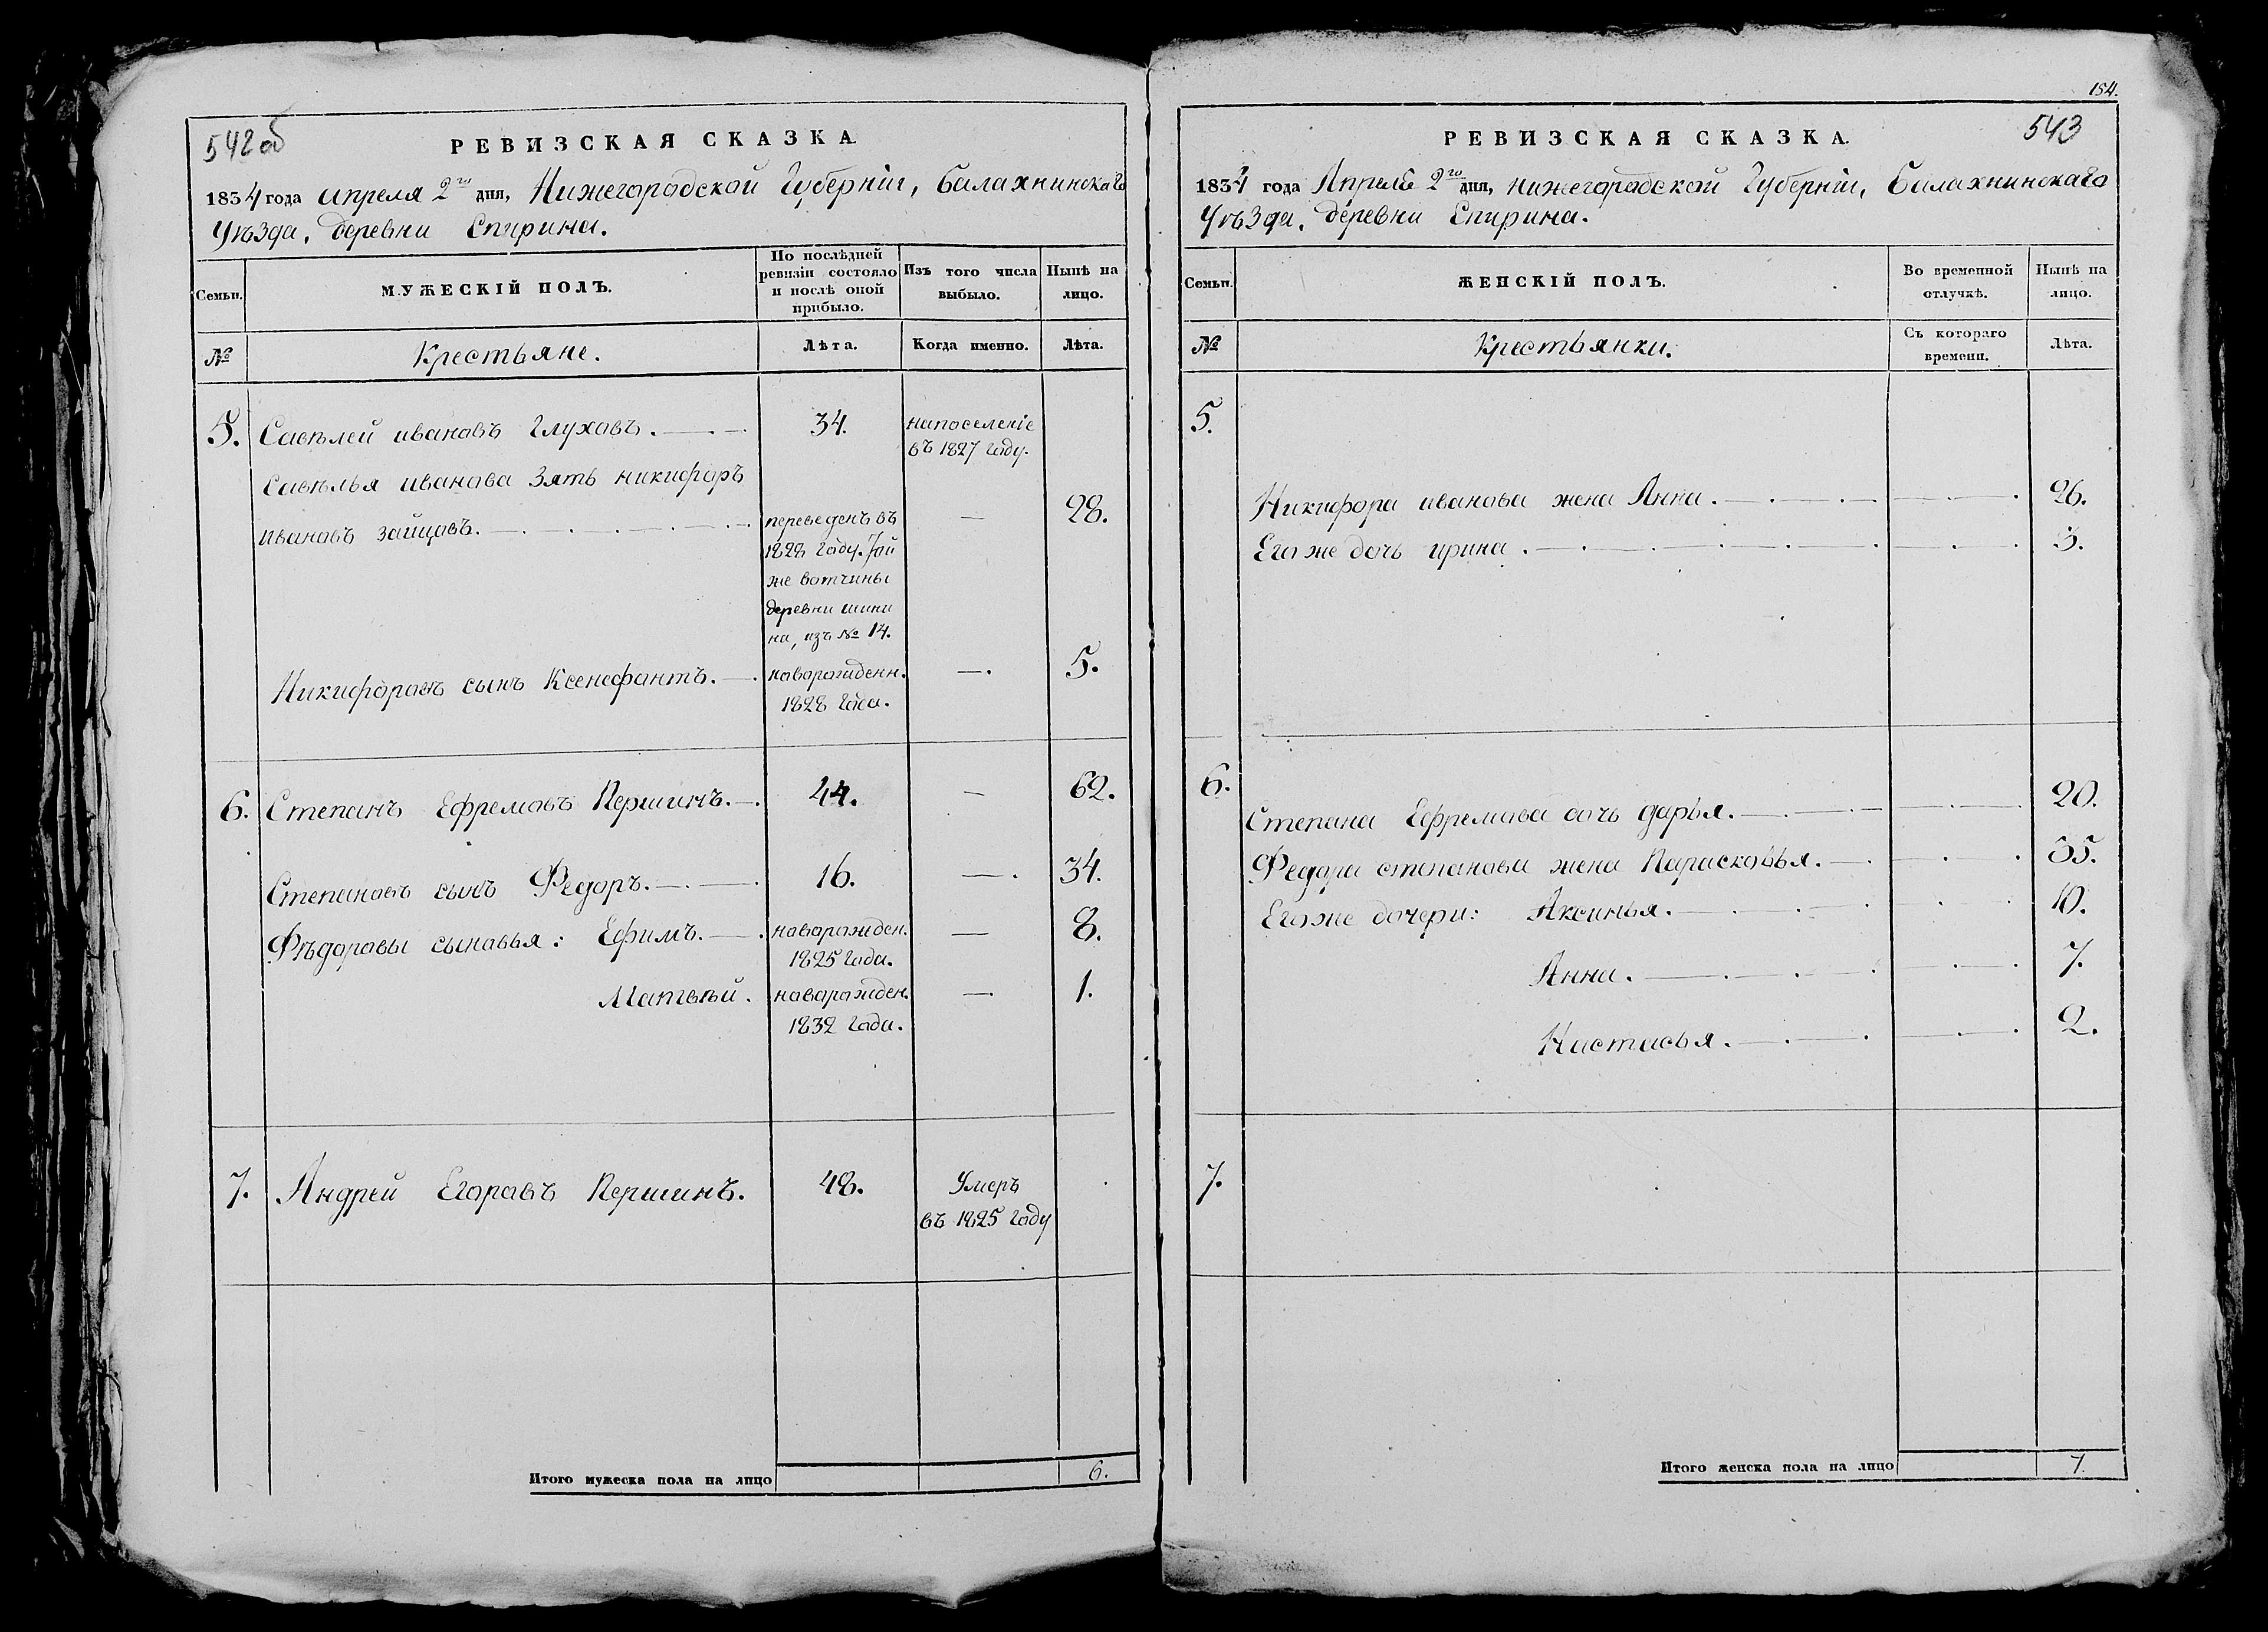 542об
РЕВИЗСКАЯ СКАЗКА.
1834 года апреля 2го дня, Нижегородской Губерніи, Балахнинскаго
Уѣзда, деревни Спирина.
Семьи.
МУЖЕСКІЙ ПОЛЪ.
По послѣдней ревизіи состояло и послѣ оной прибыло.
Изъ того числа выбыло.
Нынѣ на лицо.
№
Крестьяне.
Лѣта.
Когда именно.
Лѣта.
5. Савѣлей ивановъ Глуховъ. 34. на поселеніе
въ 1827 году.
Савѣлья иванова Зять никифоръ
ивановъ зайцовъ. переведенъ въ — 28.
1828 году. Той
же вотчины
деревни шини
на, изъ № 14.
Никифоровъ сынъ Ксенофантъ. новорожденн. — 5.
1828 года.
6. Степанъ Ефремовъ Першинъ. 44. — 62.
Степановъ сынъ Федоръ. 16. — 34.
Фѣдоровы сыновья: Ефимъ. новорожден. — 8.
1825 года.
Матвѣй. новорожден. — 1.
1832 года.
7. Андрей Егоровъ Першинъ. 48. Умеръ
въ 1825 году
Итого мужеска пола на лицо 6.
154.
543
РЕВИЗСКАЯ СКАЗКА.
1834 года Апреля 2го дня, нижегородской Губерніи, Балахнинскаго
Уѣзда, деревни Спирина.
Семьи.
ЖЕНСКІЙ ПОЛЪ.
Во временной отлучкѣ.
Нынѣ на лицо.
№
Крестьянки.
Съ котораго времени.
Лѣта.
5.
Никифора иванова жена Анна. 26.
Его же дочь ирина. 3.
6.
Степана Ефремова дочь дарья. 20.
Федора степанова жена Парасковья. 35.
Его же дочери: Аксинья. 10.
Анна. 7.
Настасья. 2.
7.
Итого женска пола на лицо 7.